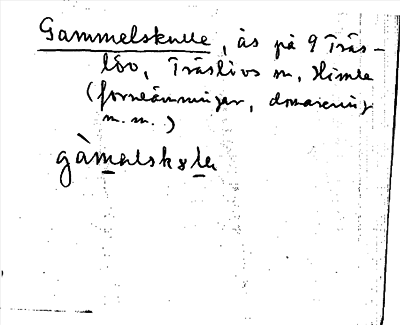 Gammelskulle, ås på 9 Träs-
löv, Träslövs sn, Himle
(fornlämningar, domarring
m.m.)
gàmalskɤlen